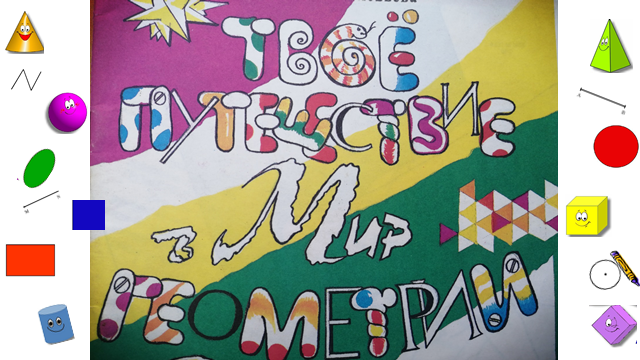 ТВОЁ
ПУТЕШЕСТВИЕ
в Мир
ГЕОМЕТРИИ